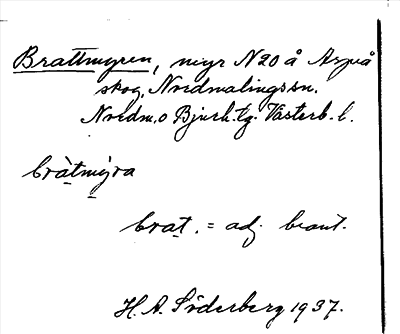 Brattmyren, myr N 20 å Aspeå
skog, Nordmalings sn.
Nordm. o Bjurh. tg. Västerb. l.
bràtmýra
brat. = adj. brant.
H. A. Söderberg 1937.